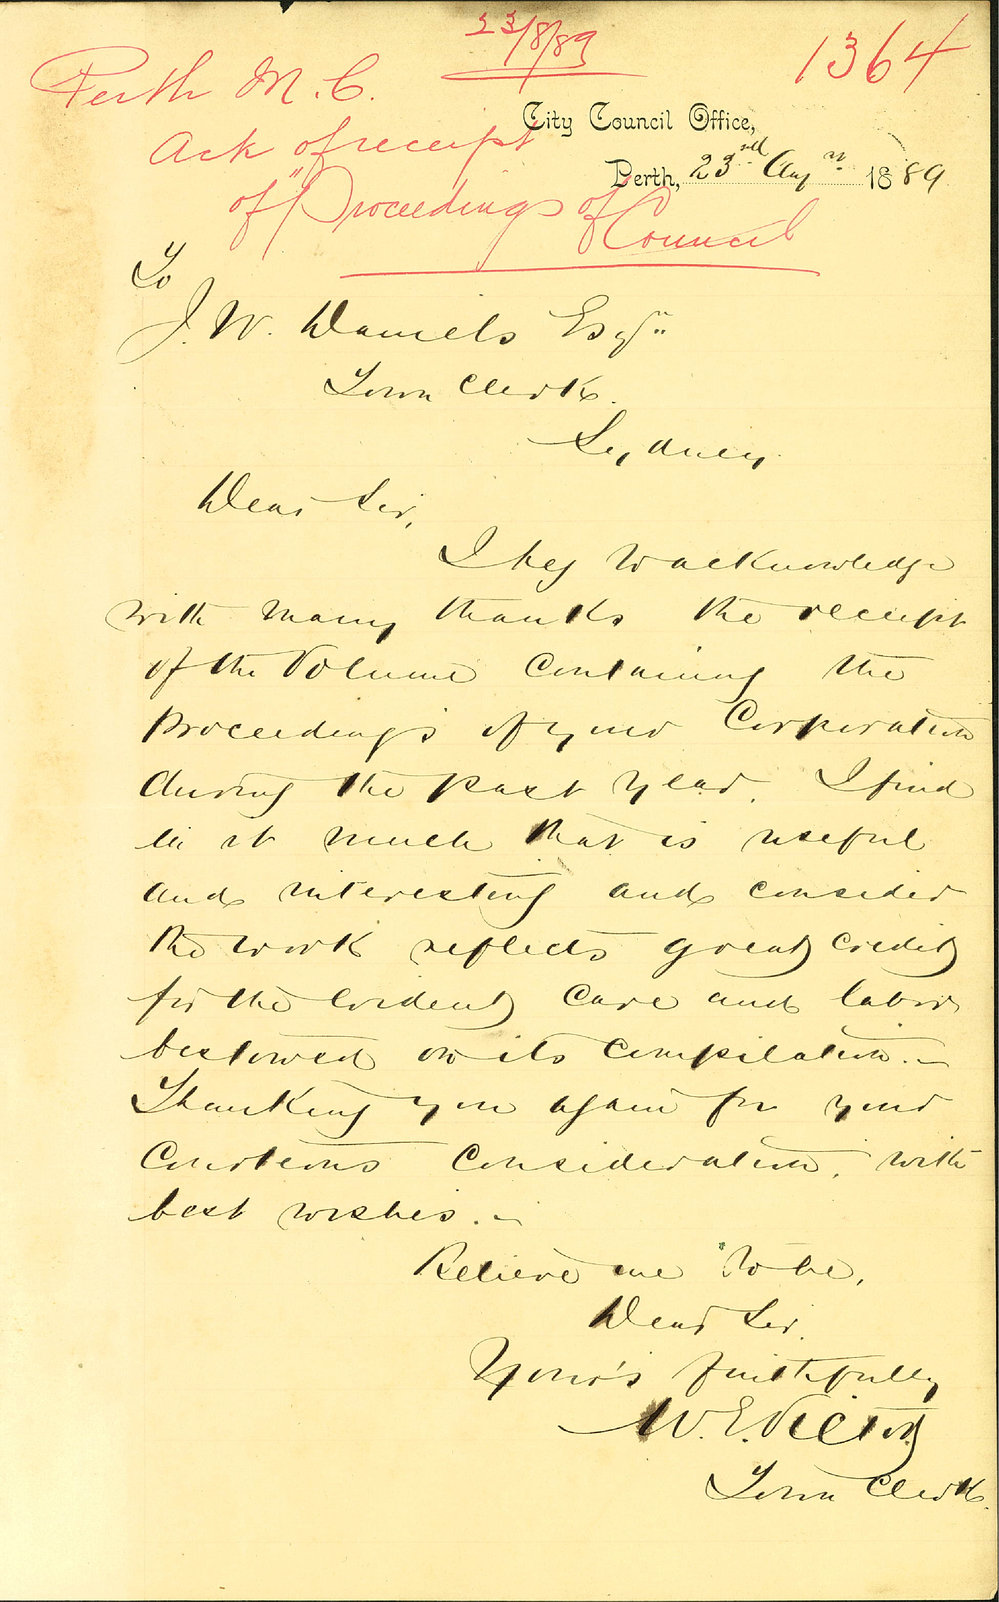 23/8/89
1364
Perth M.C.
Ack of receipt
of "Proceedings of
Council
City Council Office,
Perth, 23rd Augt 1889
To
J. W. Daniels Esqr
Town Clerk.
Sydney
Dear Sir,
I beg to acknowledge
with many thanks the receipt
of the Volume containing the
Proceedings of your Corporation
during the past year. I find
in it much that is useful
and interesting and consider
the work reflects great credit
for the evident care and labor
bestowed on its compilation. —
Thanking you again for your
Courteous Consideration, with
best wishes. —
Believe me to be,
Dear Sir.
Your's faithfully
W. E. Victor
Town Clerk.